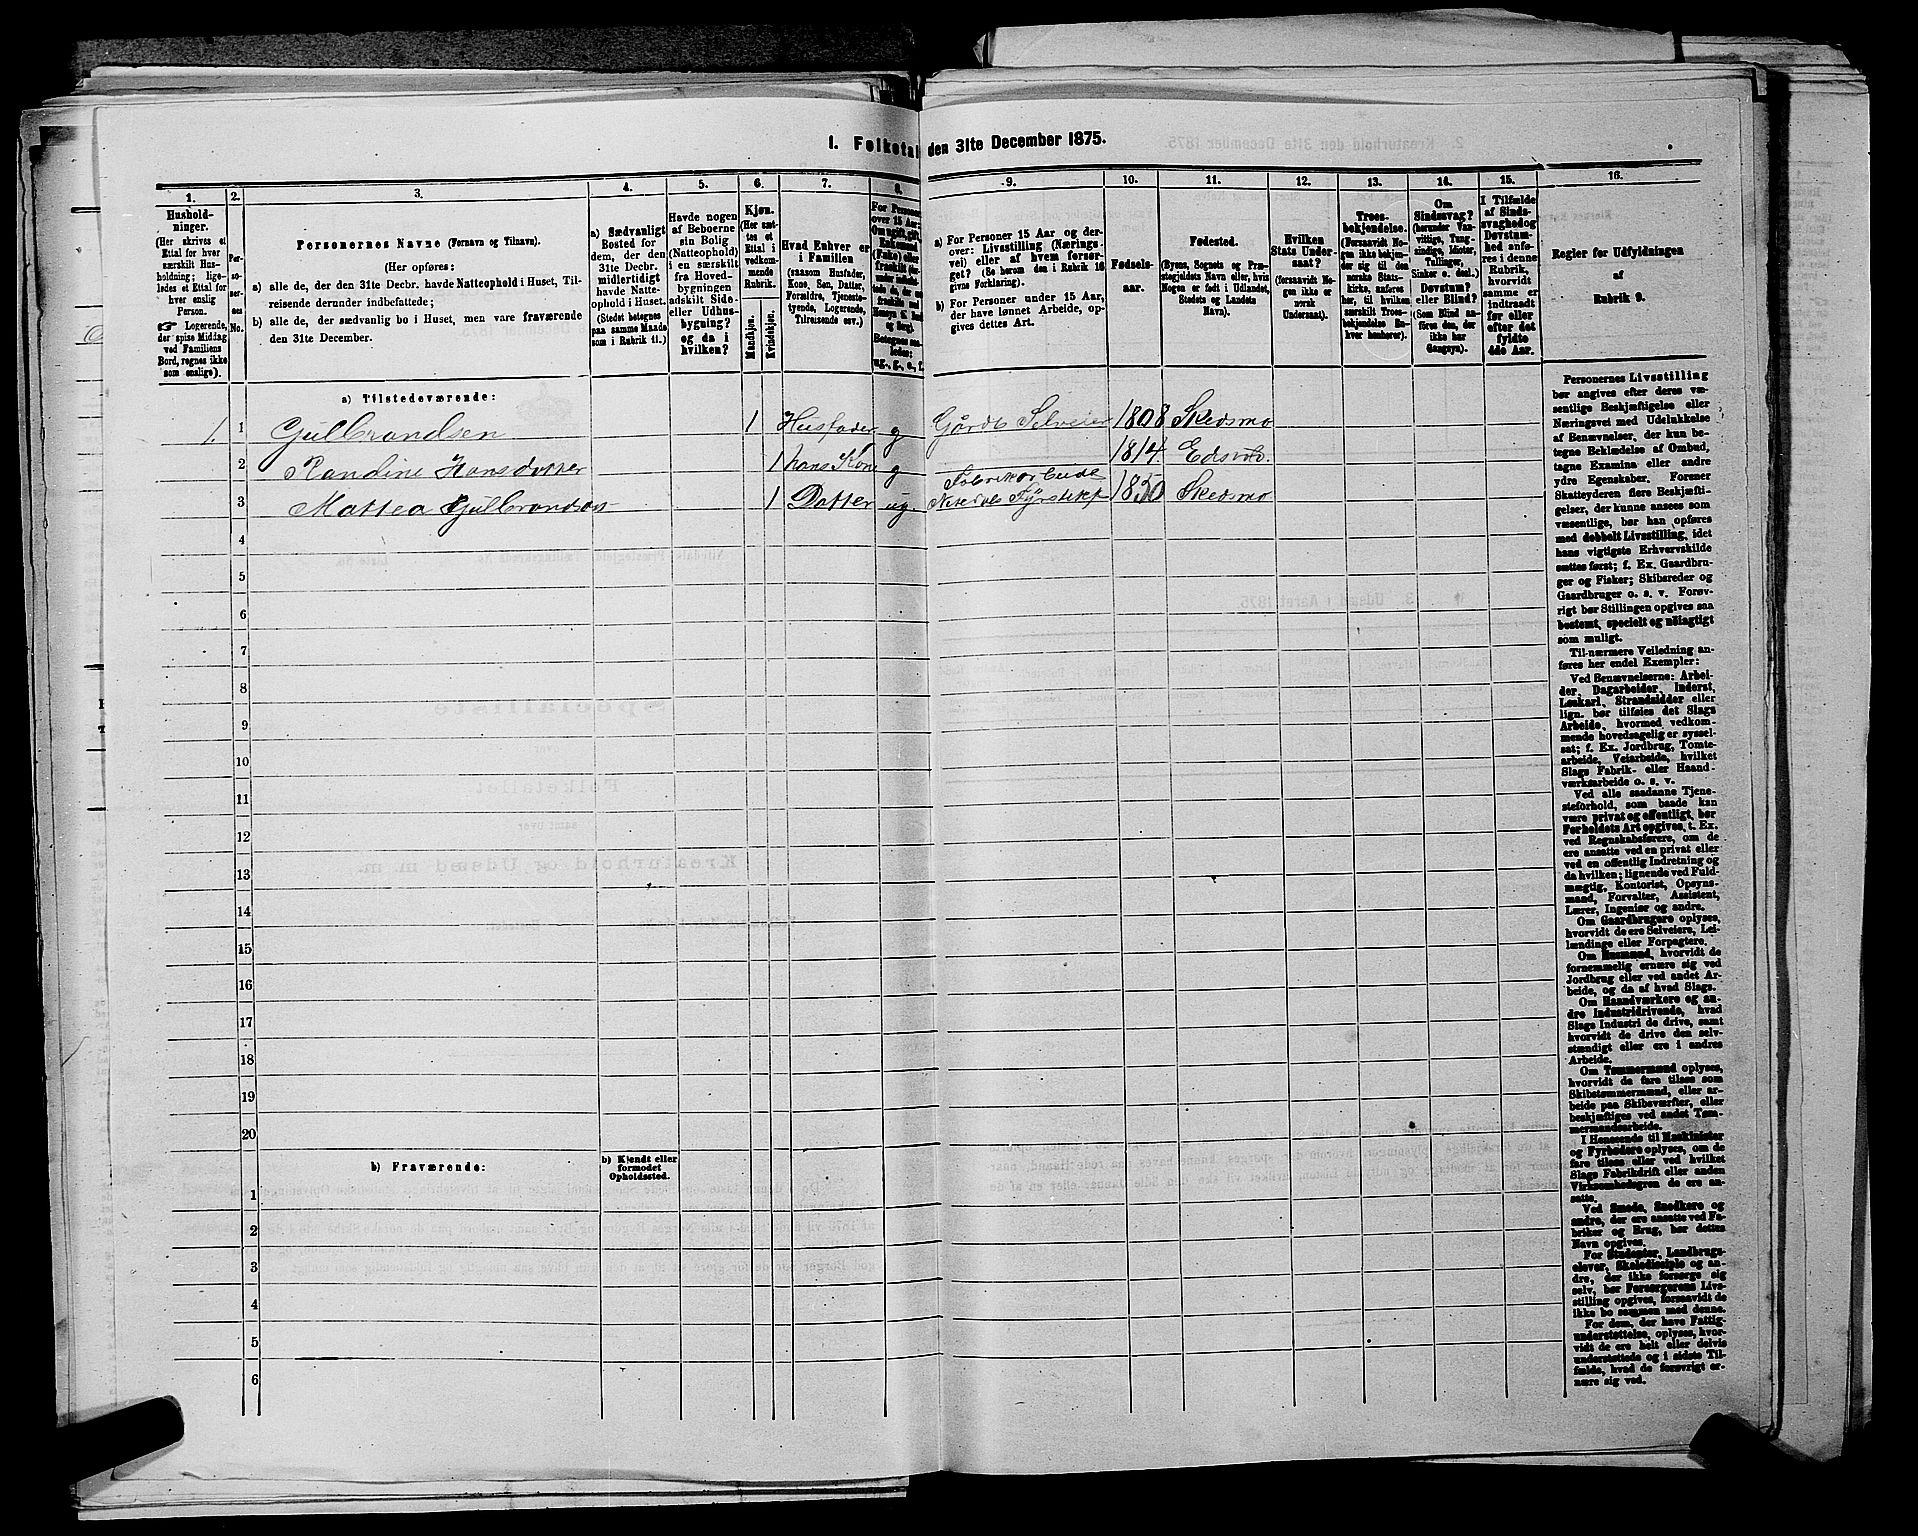 I. Folketal den 31te December 1875.
1.
2.
3.
4.
5.
6.
7.
8.
9.
10.
11.
12.
13.
14.
15.
16.
Hushold-
ninger.
(Her skrives et
Ettal for hver
særskilt Hus-
holdning; lige-
ledes et Ettal for
hver enslig
Person.
☞ Logerende,
der spise Middag
ved Familiens
Bord, regnes ikke
som enslige).
Per-
so-
ner-
nes
No.
Personernes Navne (Fornavn og Tilnavn).
(Her opføres:
a) alle de, der den 31te Decbr. havde Natteophold i Huset, Til-
reisende derunder indbefattede;
b) alle de, der sædvanlig bo i Huset, men vare fraværende
den 31te December.
a) Sædvanligt
Bosted for
dem, der den
31te Decbr.
midlertidigt
havde Natte-
ophold i Huset.
(Stedet betegnes
paa samme Maade
som i Rubrik 11.)
Havde nogen
af Beboerne
sin Bolig
(Natteophold)
i en særskilt
fra Hoved-
bygningen
adskilt Side-
eller Udhus-
bygning?
og da i
hvilken?
Kjøn.
(Her sæt-
tes et
Ettal i
vedkom-
mende
Rubrik.
Mandkjøn.
Kvindekjøn.
Hvad Enhver er
i Familien
(saasom Husfader,
Kone, Søn, Datter,
Forældre, Tjeneste-
tyende, Logerende,
Tilreisende osv.)
For Personer
over 15 Aar:
a) For Personer 15 Aar og der-
over: Livsstilling (Nærings-
vei) eller af hvem forsør-
get? (Se herom den i Rubrik 16
givne Forklaring).
b) For Personer under 15 Aar,
der have lønnet Arbeide, op-
gives dettes Art.
Fødsels-
aar.
Fødested.
(Byens, Sognets og Præ-
stegjeldets Navn eller, hvis
Nogen er født i Udlandet,
Stedets og Landets
Navn).
Hvilken
Stats Under-
saat?
(forsaavidt No-
gen ikke er
norsk
Undersaat).
Troes-
bekjendelse.
(Forsaavidt No-
gen ikke bekjen-
der sig til den
norske Stats-
kirke, anføres
her, til hvilken
særskilt Troes-
bekjendelse En-
hver henhører).
Om
Sindssvag?
(herunder Van-
vittige, Tung-
sindige, Idioter,
Tullinger,
Sinker o. desl.)
Døvstum?
eller Blind?
(Som Blind an-
føres den, der
ikke har
Gangsyn).
I Tilfælde
af Sinds-
svaghed og
Døvstum-
hed anfø-
res i denne
Rubrik,
hvorvidt
samme er
indtraadt
før eller
efter det
fyldte
4de Aar.
Regler for Udfyldningen
af
Rubrik 9.
a) Tilstedeværende:
1. 1 Gulbrandsen 1 Husfader g Gårdb. Selveier 1808 Skedsmo
2 Randine Hansdatter 1 hans Kone g 1814 Edsvol.
Fabrikarbeide
3 Mattea Gulbrandsen 1 Datter ug. Nitedals Fyrstikf 1850 Skedsmo
4
5
6
7
8
9
10
11
12
13
14
15
16
17
18
19
20
b) Fraværende:
b) Kjendt eller
formodet
Opholdssted.
1
2
3
4
5
6
Personernes Livsstilling
bør angives efter deres væ-
sentlige Beskjæftigelse eller
Næringsvei med Udelukkelse
af Benævnelser, der kun be-
tegne Beklædelse af Ombud,
tagne Examina eller andre
ydre Egenskaber. Forener
Skatteyderen flere Beskjæfti-
gelser, der kunne ansees som
væsentlige, bør han opføres
med dobbelt Livsstilling, idet
hans vigtigste Erhvervskilde
sættes først; f. Ex. Gaardbru-
ger og Fisker; Skibsreder og
Gaardbruger o. s. v. Forøv-
rigt bør Stillingen opgives saa
bestemt, specielt og nøiagtigt
som muligt.
Til nærmere Veiledning an-
føres her endel Exempler:
Ved Benævnelserne: Arbei-
der, Dagarbeider, Inderst,
Løskarl, Strandsidder eller
lign. bør tilføies det Slags
Arbeide, hvormed vedkom-
mende hovedsagelig er syssel-
sat; f. Ex. Jordbrug, Tomte-
arbeide, Veiarbeide, hvilket
Slags Fabrik- eller Haand-
værksarbeide o. s. v.
Ved alle saadanne Tjene-
steforhold, som baade kan
være privat og offentligt, bør
Forholdets Art opgives, t. Ex.
ved Regnskabsførere, om de
ere ansatte ved en privat eller
ved en offentlig Indretning og
da hvilken; lignende ved Fuld-
mægtig, Kontorist, Opsyns-
mand, Forvalter, Assistent,
Lærer, Ingeniør og andre.
Om Gaardbrugere oplyses,
hvorvidt de ere Selveiere, Lei-
lændinge eller Forpagtere.
Om Husmænd, hvorvidt de
fornemmelig ernære sig ved
Jordbrug eller ved andet Ar-
beide, og da af hvad Slags.
Om Haandværkere og an-
dre Industridrivende, hvad
Slags Industri de drive, samt
hvorvidt de drive den selv-
stændigt eller ere i andres
Arbeide.
Om Tømmermænd oplyses,
hvorvidt de fare tilsøs som
Skibstømmermænd, eller ar-
beide paa Skibsværfter, eller
beskjæftiges ved andet Tøm-
mermandsarbeide.
I Henseende til Maskinister
og Fyrbødere oplyses, om de
fare tilsøs eller ved hvilket
Slags Fabrikdrift eller anden
Virksomhedsgren de ere an-
satte.
Ved Smede, Snedkere og
andre, der ere ansatte ved Fa-
briker og Brug, bør dettes
Navn opgives.
For Studenter, Landbrugs-
elever, Skoledisciple og an-
dre, der ikke forsørge sig
selv, bør Forsørgerens Livs-
stilling opgives, forsaavidt de
ikke bo sammen med denne.
For dem, der have Fattig-
understøttelse, oplyses, hvor-
vidt de ere helt eller delvis
understøttede og i sidste Til-
fælde, hvad de forøvrigt er-
nære sig ved.